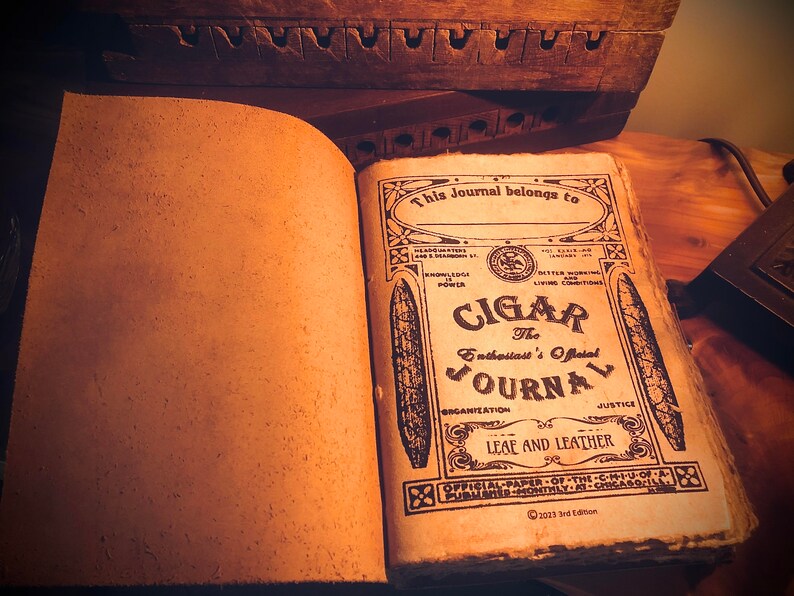 This Journal belongs to
HEADQUARTERS
440 S. DEARBORN ST.
JANUARY
KNOWLEDGE
IS
POWER
BETTER WORKING
AND
LIVING CONDITIONS
CIGAR
The
Enthusiast's Official
JOURNAL
ORGANIZATION
JUSTICE
LEAF AND LEATHER
OFFICIAL·PAPER·OF·THE·C·M·I·U·OF·A·
PUBLISHED·MONTHLY·AT·CHICAGO,ILL.
©2023 3rd Edition